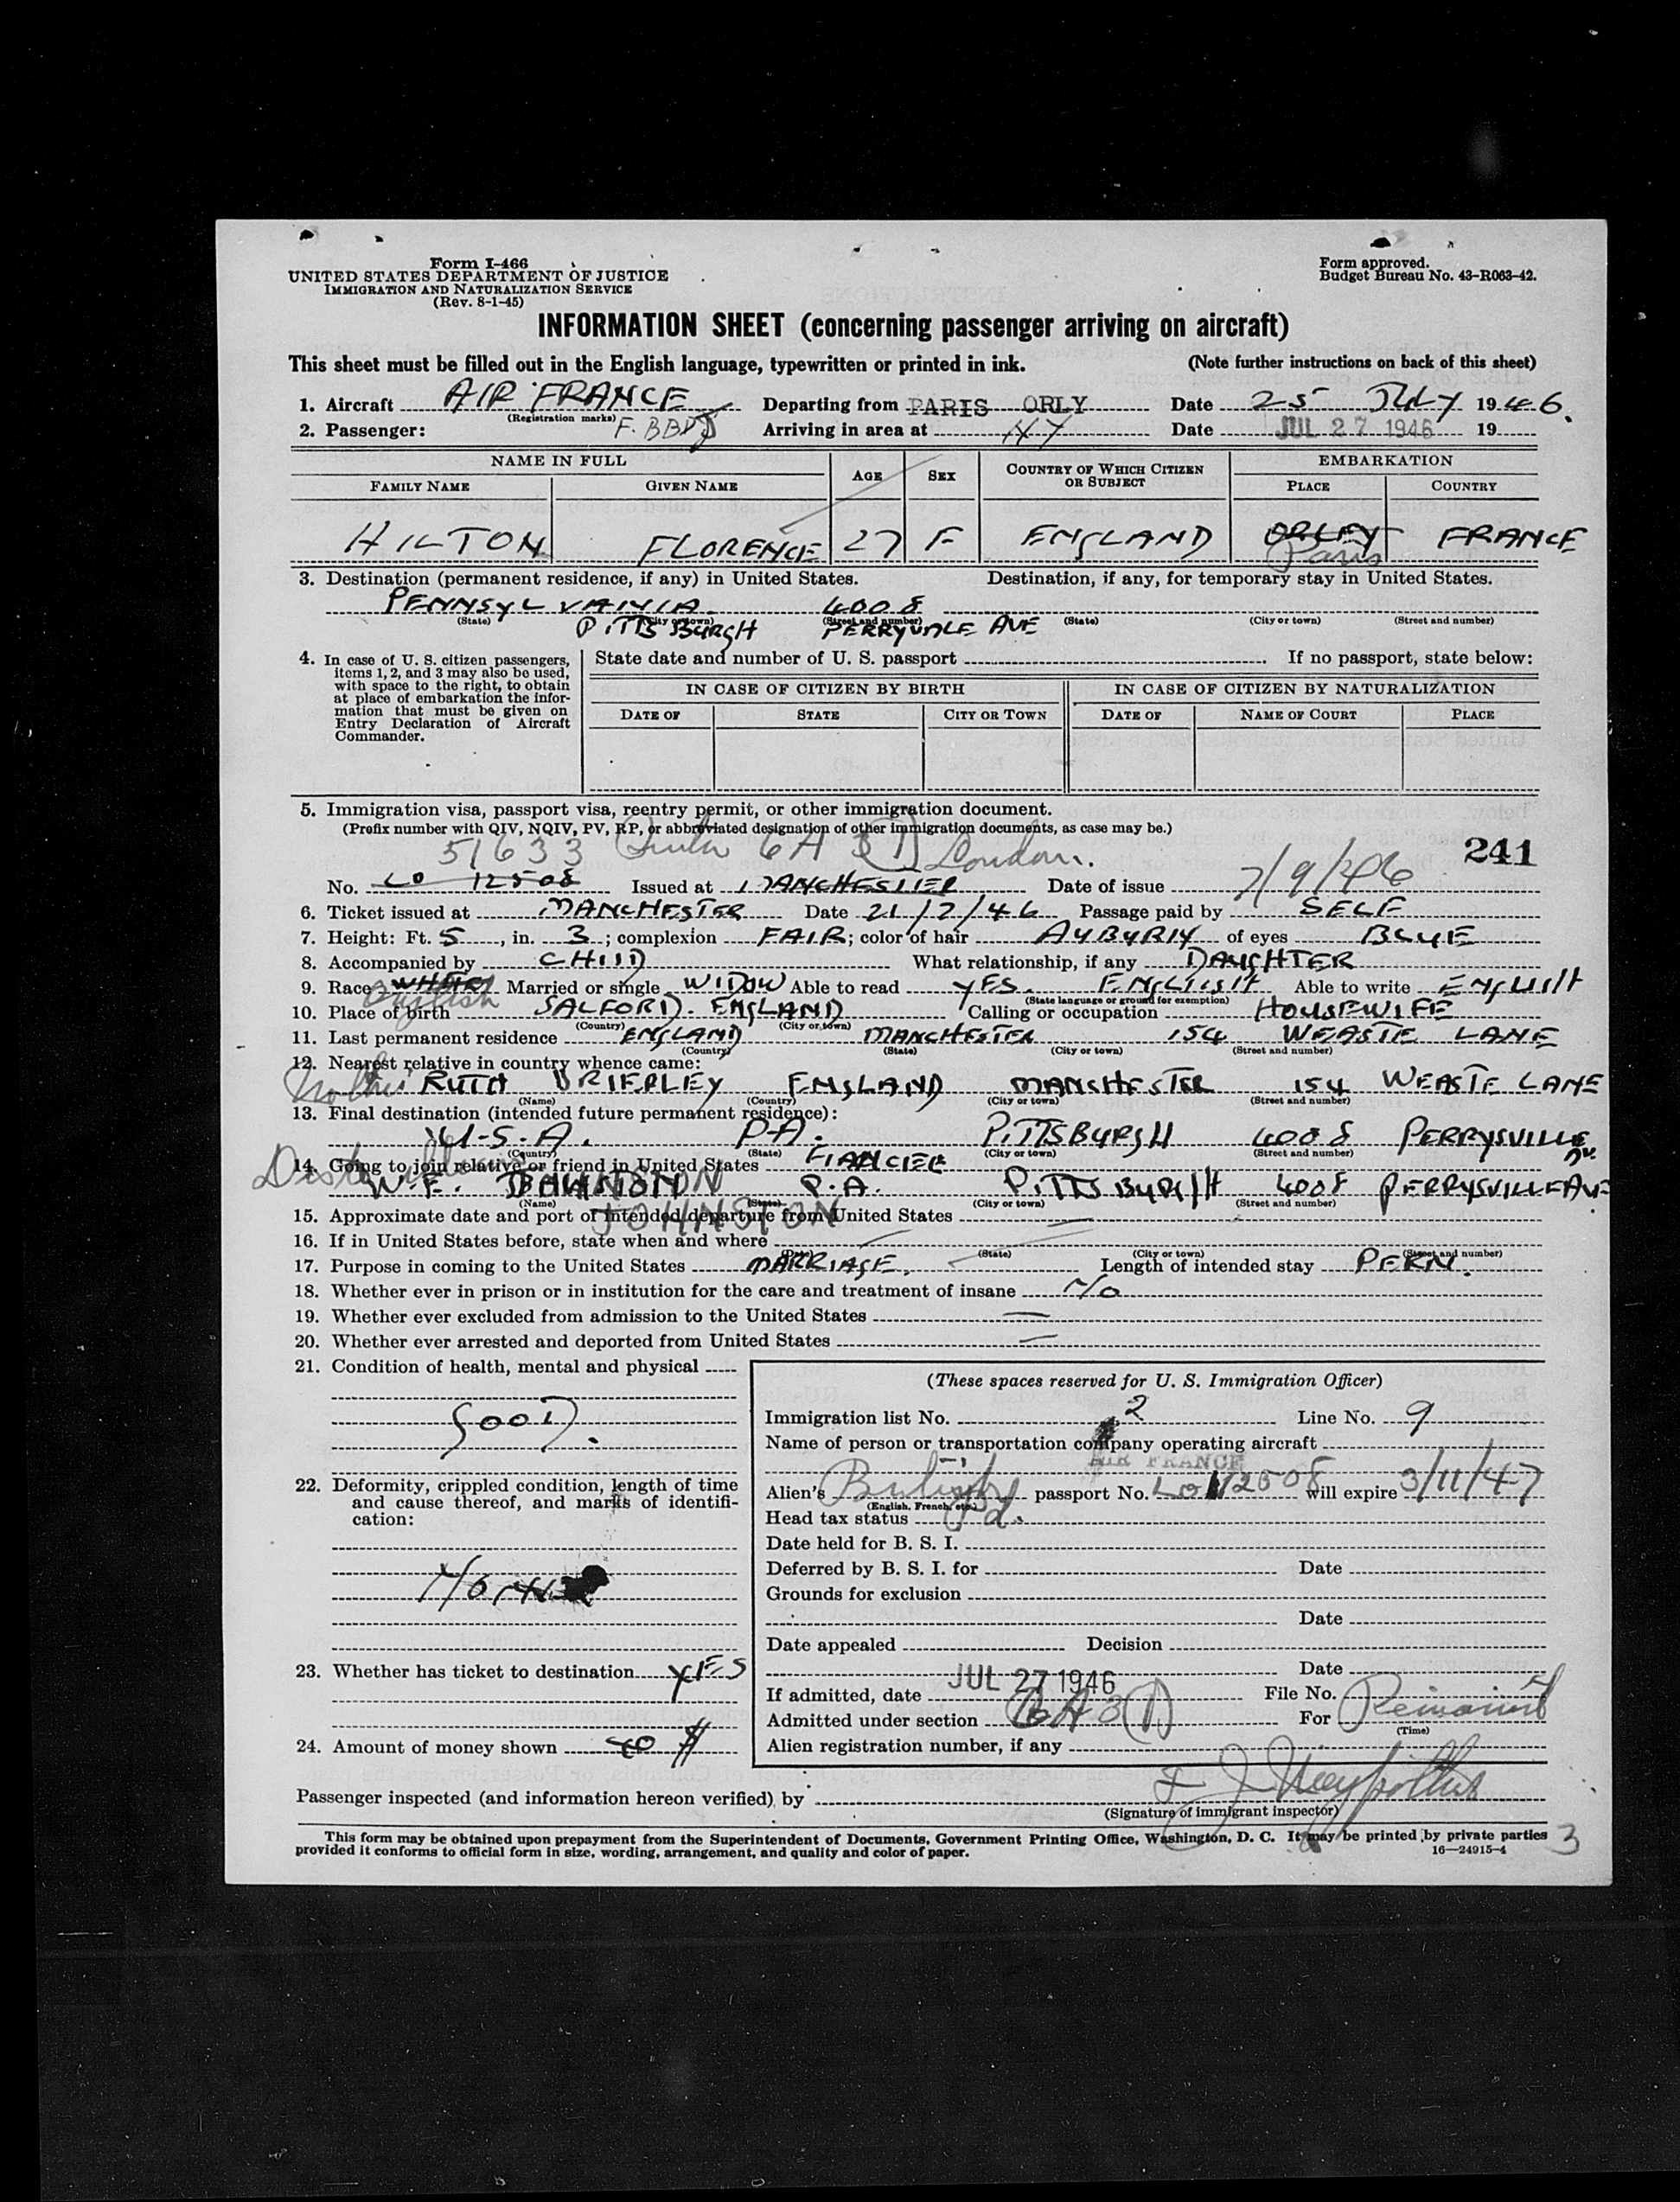 Form I-466
UNITED STATES DEPARTMENT OF JUSTICE
IMMIGRATION AND NATURALIZATION SERVICE
(Rev. 8-1-45)
Form approved.
Budget Bureau No. 43-R063-42.
INFORMATION SHEET (concerning passenger arriving on aircraft)
This sheet must be filled out in the English language, typewritten or printed in ink. (Note further instructions on back of this sheet)
1. Aircraft AIR FRANCE Departing from PARIS ORLY Date 25 JULY 1946.
(Registration marks)
2. Passenger: F. BBDJ Arriving in area at NY Date JUL 27 1946 19
NAME IN FULL AGE SEX COUNTRY OF WHICH CITIZEN OR SUBJECT EMBARKATION
FAMILY NAME GIVEN NAME PLACE COUNTRY
HILTON FLORENCE 27 F ENGLAND ORLEY FRANCE
Paris
3. Destination (permanent residence, if any) in United States. Destination, if any, for temporary stay in United States.
PENNSYLVANIA 4008
(State) (City or town) (Street and number) (State) (City or town) (Street and number)
PITTSBURGH PERRYVALE AVE
4. In case of U. S. citizen passengers, items 1, 2, and 3 may also be used, with space to the right, to obtain at place of embarkation the information that must be given on Entry Declaration of Aircraft Commander.
State date and number of U. S. passport If no passport, state below:
IN CASE OF CITIZEN BY BIRTH IN CASE OF CITIZEN BY NATURALIZATION
DATE OF STATE CITY OR TOWN DATE OF NAME OF COURT PLACE
5. Immigration visa, passport visa, reentry permit, or other immigration document.
(Prefix number with QIV, NQIV, PV, RP, or abbreviated designation of other immigration documents, as case may be.)
51633 6A 3(1) London. 241
No. LO 12508 Issued at MANCHESTER Date of issue 7/9/46
6. Ticket issued at MANCHESTER Date 21/2/46 Passage paid by SELF
7. Height: Ft. 5, in. 3; complexion FAIR; color of hair AUBURN of eyes BLUE
8. Accompanied by CHILD What relationship, if any DAUGHTER
9. Race WHITE Married or single WIDOW Able to read YES. ENGLISH Able to write ENGLISH
English (State language or ground for exemption)
10. Place of birth SALFORD. ENGLAND Calling or occupation HOUSEWIFE
(Country) (City or town)
11. Last permanent residence ENGLAND MANCHESTER 154 WEASTE LANE
(Country) (State) (City or town) (Street and number)
12. Nearest relative in country whence came:
Mother RUTH BRIERLEY ENGLAND MANCHESTER 154 WEASTE LANE
(Name) (Country) (City or town) (Street and number)
13. Final destination (intended future permanent residence):
U.S.A. PA. PITTSBURGH 4008 PERRYSVILLE AV.
(Country) (State) (City or town) (Street and number)
14. Going to join relative or friend in United States FIANCIER
W. E. JOHNSTON P.A. PITTSBURGH 4008 PERRYSVILLE AVE
(Name) (State) (City or town) (Street and number)
JOHNSTON
15. Approximate date and port of intended departure from United States —
16. If in United States before, state when and where —
(Date) (State) (City or town) (Street and number)
17. Purpose in coming to the United States MARRIAGE. Length of intended stay PERM.
18. Whether ever in prison or in institution for the care and treatment of insane No
19. Whether ever excluded from admission to the United States —
20. Whether ever arrested and deported from United States —
21. Condition of health, mental and physical
GOOD.
22. Deformity, crippled condition, length of time and cause thereof, and marks of identification:
23. Whether has ticket to destination YES
24. Amount of money shown 40 $
(These spaces reserved for U. S. Immigration Officer)
Immigration list No. 2 Line No. 9
Name of person or transportation company operating aircraft
AIR FRANCE
Alien's British passport No. Lo 12508 will expire 3/11/47
(English, French, etc.)
Head tax status Pd.
Date held for B. S. I.
Deferred by B. S. I. for Date
Grounds for exclusion
Date
Date appealed Decision
Date
If admitted, date JUL 27 1946 File No.
Admitted under section 6A3(1) For
(Time)
Alien registration number, if any
Passenger inspected (and information hereon verified) by
(Signature of immigrant inspector)
This form may be obtained upon prepayment from the Superintendent of Documents, Government Printing Office, Washington, D. C. It may be printed by private parties
provided it conforms to official form in size, wording, arrangement, and quality and color of paper. 16—24915-4
3